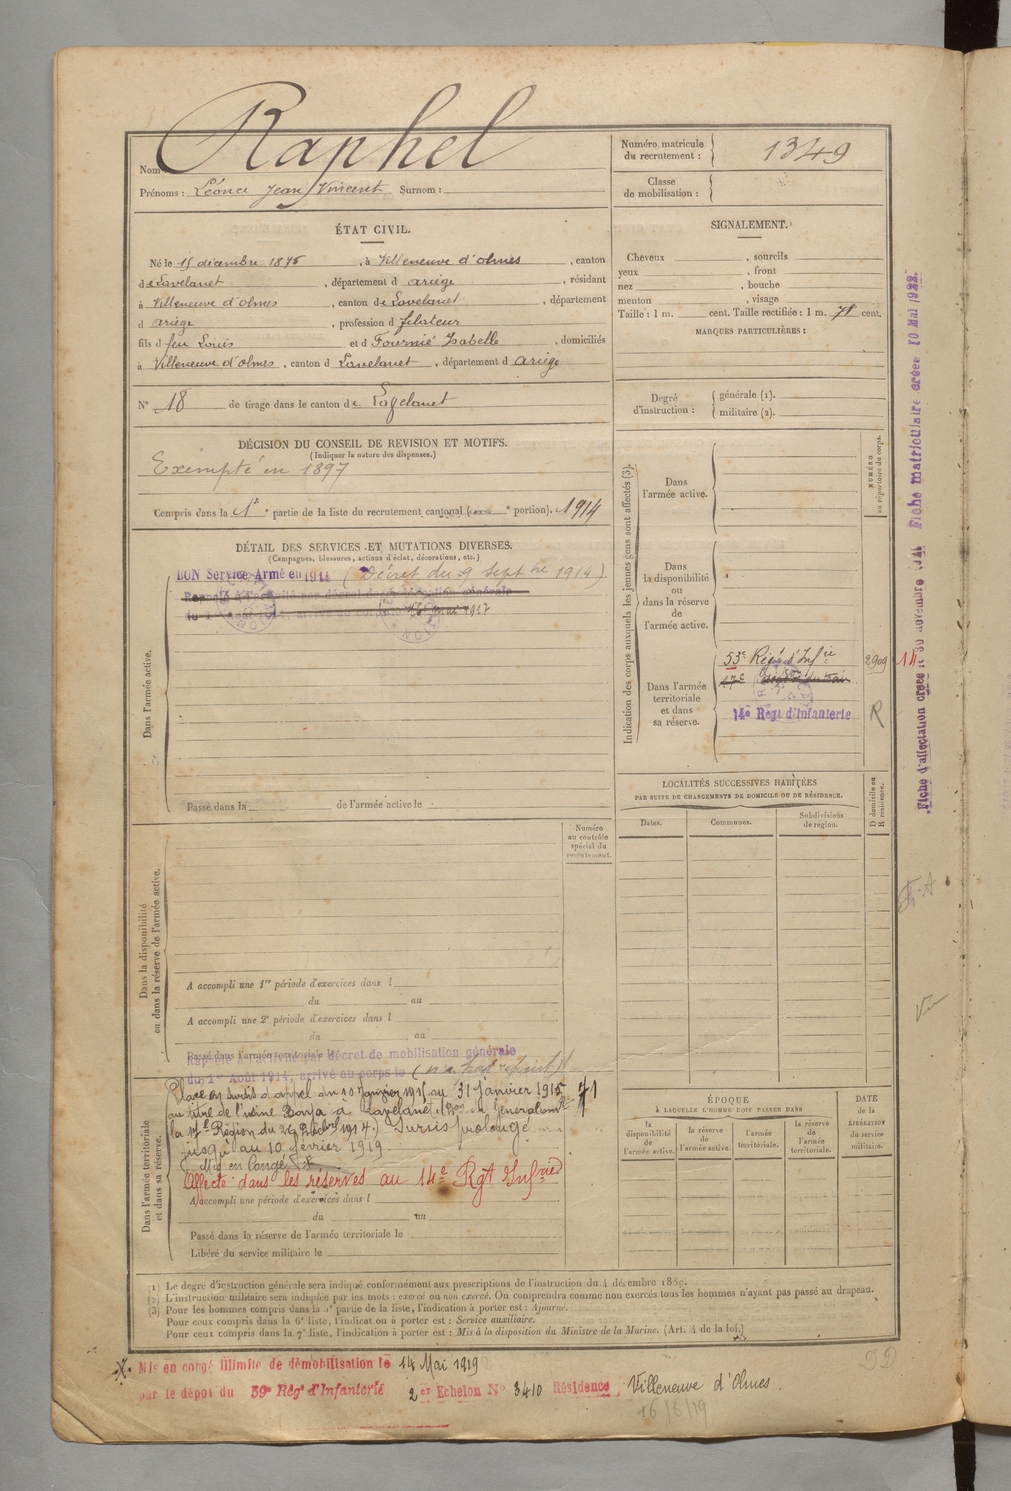 Raphel
Nom :
Prénoms : Léonce Jean Vincent Surnom :
Numéro matricule du recrutement : 1349
Classe de mobilisation :
ÉTAT CIVIL.
Né le 15 décembre 1876, à Villeneuve d'Olmes, canton
de Lavelanet, département d ariège, résidant
à Villeneuve d'Olmes, canton de Lavelanet, département
d ariège, profession d filateur
fils d feu Louis et d Fournié Isabelle, domiciliés
à Villeneuve d'Olmes, canton d Lavelanet, département d ariège
N° 18 de tirage dans le canton de Lavelanet
DÉCISION DU CONSEIL DE REVISION ET MOTIFS.
(Indiquer la nature des dispenses.)
Exempté en 1897
Compris dans la 1e partie de la liste du recrutement cantonal ( portion). 1914
SIGNALEMENT.
Cheveux , sourcils
yeux , front
nez , bouche
menton , visage
Taille : 1 m. cent. Taille rectifiée : 1 m. 71 cent.
MARQUES PARTICULIÈRES :
Degré d'instruction : générale (1).
militaire (2).
DÉTAIL DES SERVICES ET MUTATIONS DIVERSES.
(Campagnes, blessures, actions d'éclat, décorations, etc.)
BON Service Armé en 1914 (Décret du 9 Septbre 1914)
Rappelé à l'activité par décret de mobilisation générale
Dans l'armée active.
Passé dans la de l'armée active le
Numéro au contrôle spécial du recrutement.
Dans la disponibilité ou dans la réserve de l'armée active.
A accompli une 1re période d'exercices dans l
du au
A accompli une 2e période d'exercices dans l
du au
Passé dans l'armée territoriale le
Rappelé à l'activité par décret de mobilisation générale
du 1er Août 1914, arrivé au corps le (n'a pas rejoint)
Dans l'armée territoriale et dans sa réserve.
Placé en sursis d'appel du 10 Janvier 1915 au 31 Janvier 1915
au titre de l'usine à Lavelanet.
la 17e Région du Sursis prolongé
jusqu'au 10 février 1919
Mis en Congé
Affecté dans les réserves au 14e Rgt Infrie
A accompli une période d'exercices dans l
du au
Passé dans la réserve de l'armée territoriale le
Libéré du service militaire le
Indication des corps auxquels les jeunes gens sont affectés (3).
NUMÉRO au répertoire du corps.
Dans l'armée active.
Dans la disponibilité ou dans la réserve de l'armée active.
Dans l'armée territoriale et dans sa réserve.
53e Régt d'Infie 2909 14
14e Régt d'Infanterie R
LOCALITÉS SUCCESSIVES HABITÉES
PAR SUITE DE CHANGEMENTS DE DOMICILE OU DE RÉSIDENCE.
Dates. Communes. Subdivisions de région. D domicile ou R résidence.
ÉPOQUE
À LAQUELLE L'HOMME DOIT PASSER DANS
la disponibilité de l'armée active. la réserve de l'armée active. l'armée territoriale. la réserve de l'armée territoriale.
DATE de la LIBÉRATION du service militaire.
Fiche d'affectation créée le 30 novembre Fiche matriculaire créée 10 Mai 1922.
(1) Le degré d'instruction générale sera indiqué conformément aux prescriptions de l'instruction du 4 décembre 1889.
(2) L'instruction militaire sera indiquée par les mots : exercé ou non exercé. On comprendra comme non exercés tous les hommes n'ayant pas passé au drapeau.
(3) Pour les hommes compris dans la 2e partie de la liste, l'indication à porter est : Ajourné.
Pour ceux compris dans la 6e liste, l'indication à porter est : Service auxiliaire.
Pour ceux compris dans la 7e liste, l'indication à porter est : Mis à la disposition du Ministre de la Marine. (Art. 4 de la loi.)
Mis en congé illimité de démobilisation le 14 Mai 1919
par le dépôt du 59e Régt d'Infanterie 2er Echelon N° 3410 Résidence Villeneuve d'Olmes.
16/8/19